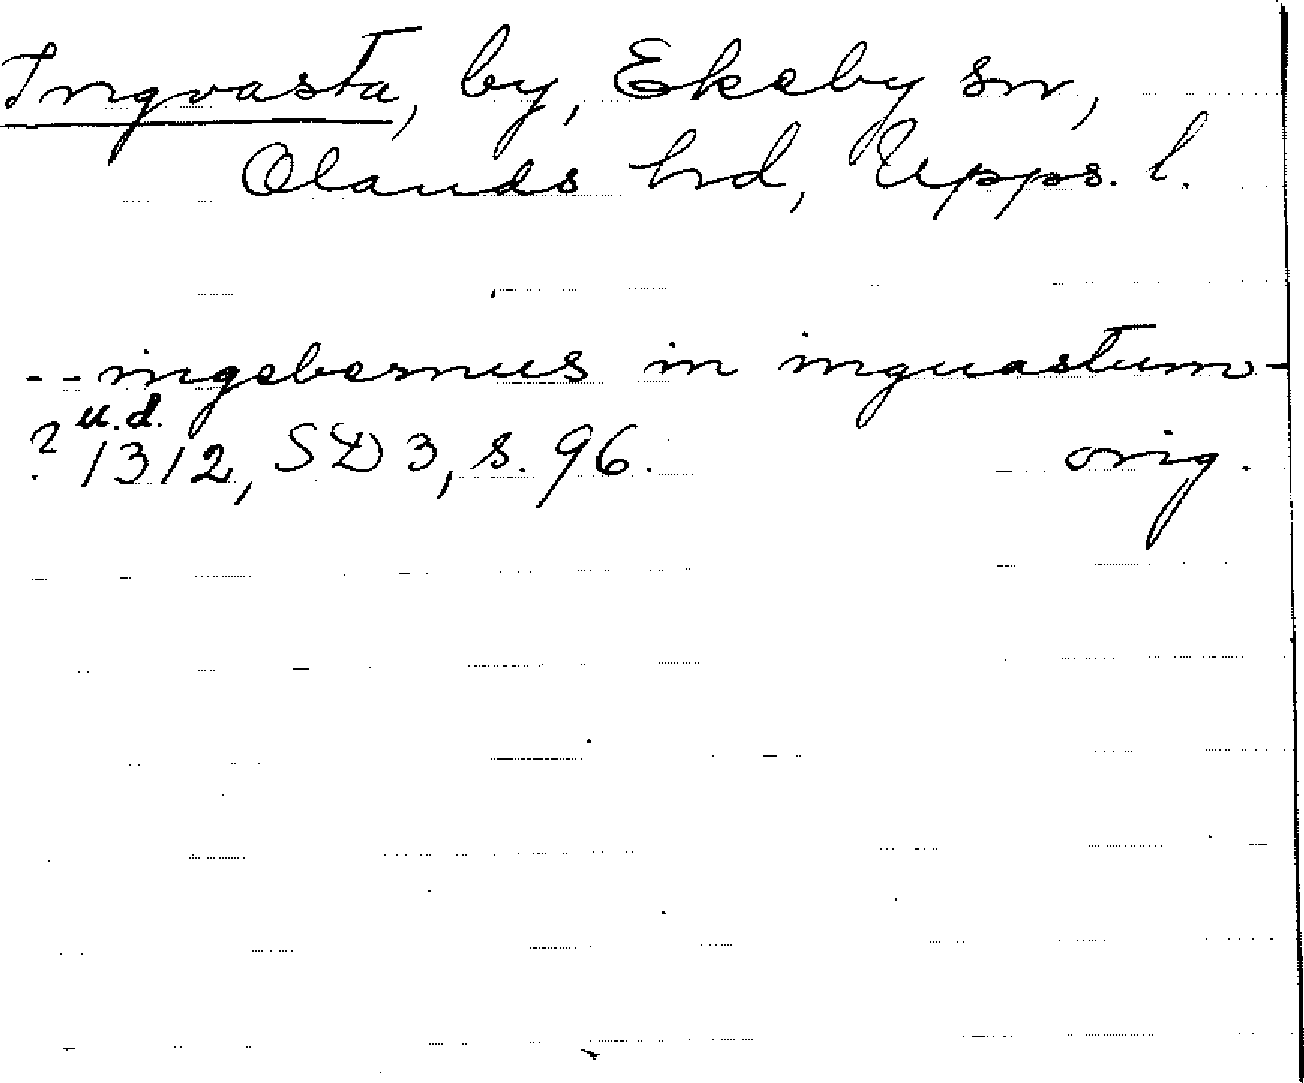 Ingvasta, by, Ekeby sn,
Olands hd, Upps. l.
-- ingebernus in inguastum -
u.d.
? 1312, SD 3, s. 96. orig.